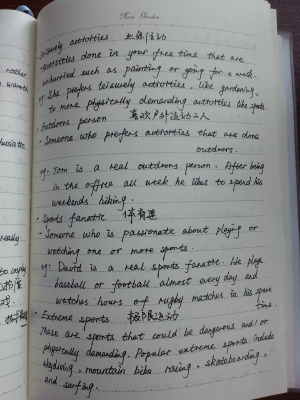 Kew Garden
Leisurely activities 休闲活动
- Activities done in your free time that are
unhurried such as painting or going for a walk.
eg: She prefers leisurely activities, like gardening,
to more physically demanding activities like sports.
· Outdoors person 喜欢户外运动的人
- Someone who prefers activities that are done
outdoors.
eg: Tom is a real outdoors person. After being
in the office all week he likes to spend his
weekends hiking.
· Sports fanatic 体育迷
- Someone who is passionate about playing or
watching one or more sports.
eg: David is a real sports fanatic. He plays
baseball or football almost every day and
watches hours of rugby matches in his spare
time.
· Extreme sports 极限运动
These are sports that could be dangerous and/or
physically demanding. Popular extreme sports include
skydiving, mountain bike racing, skateboarding,
and surfing.
rather
a warm
husiastic
really
to cosplay